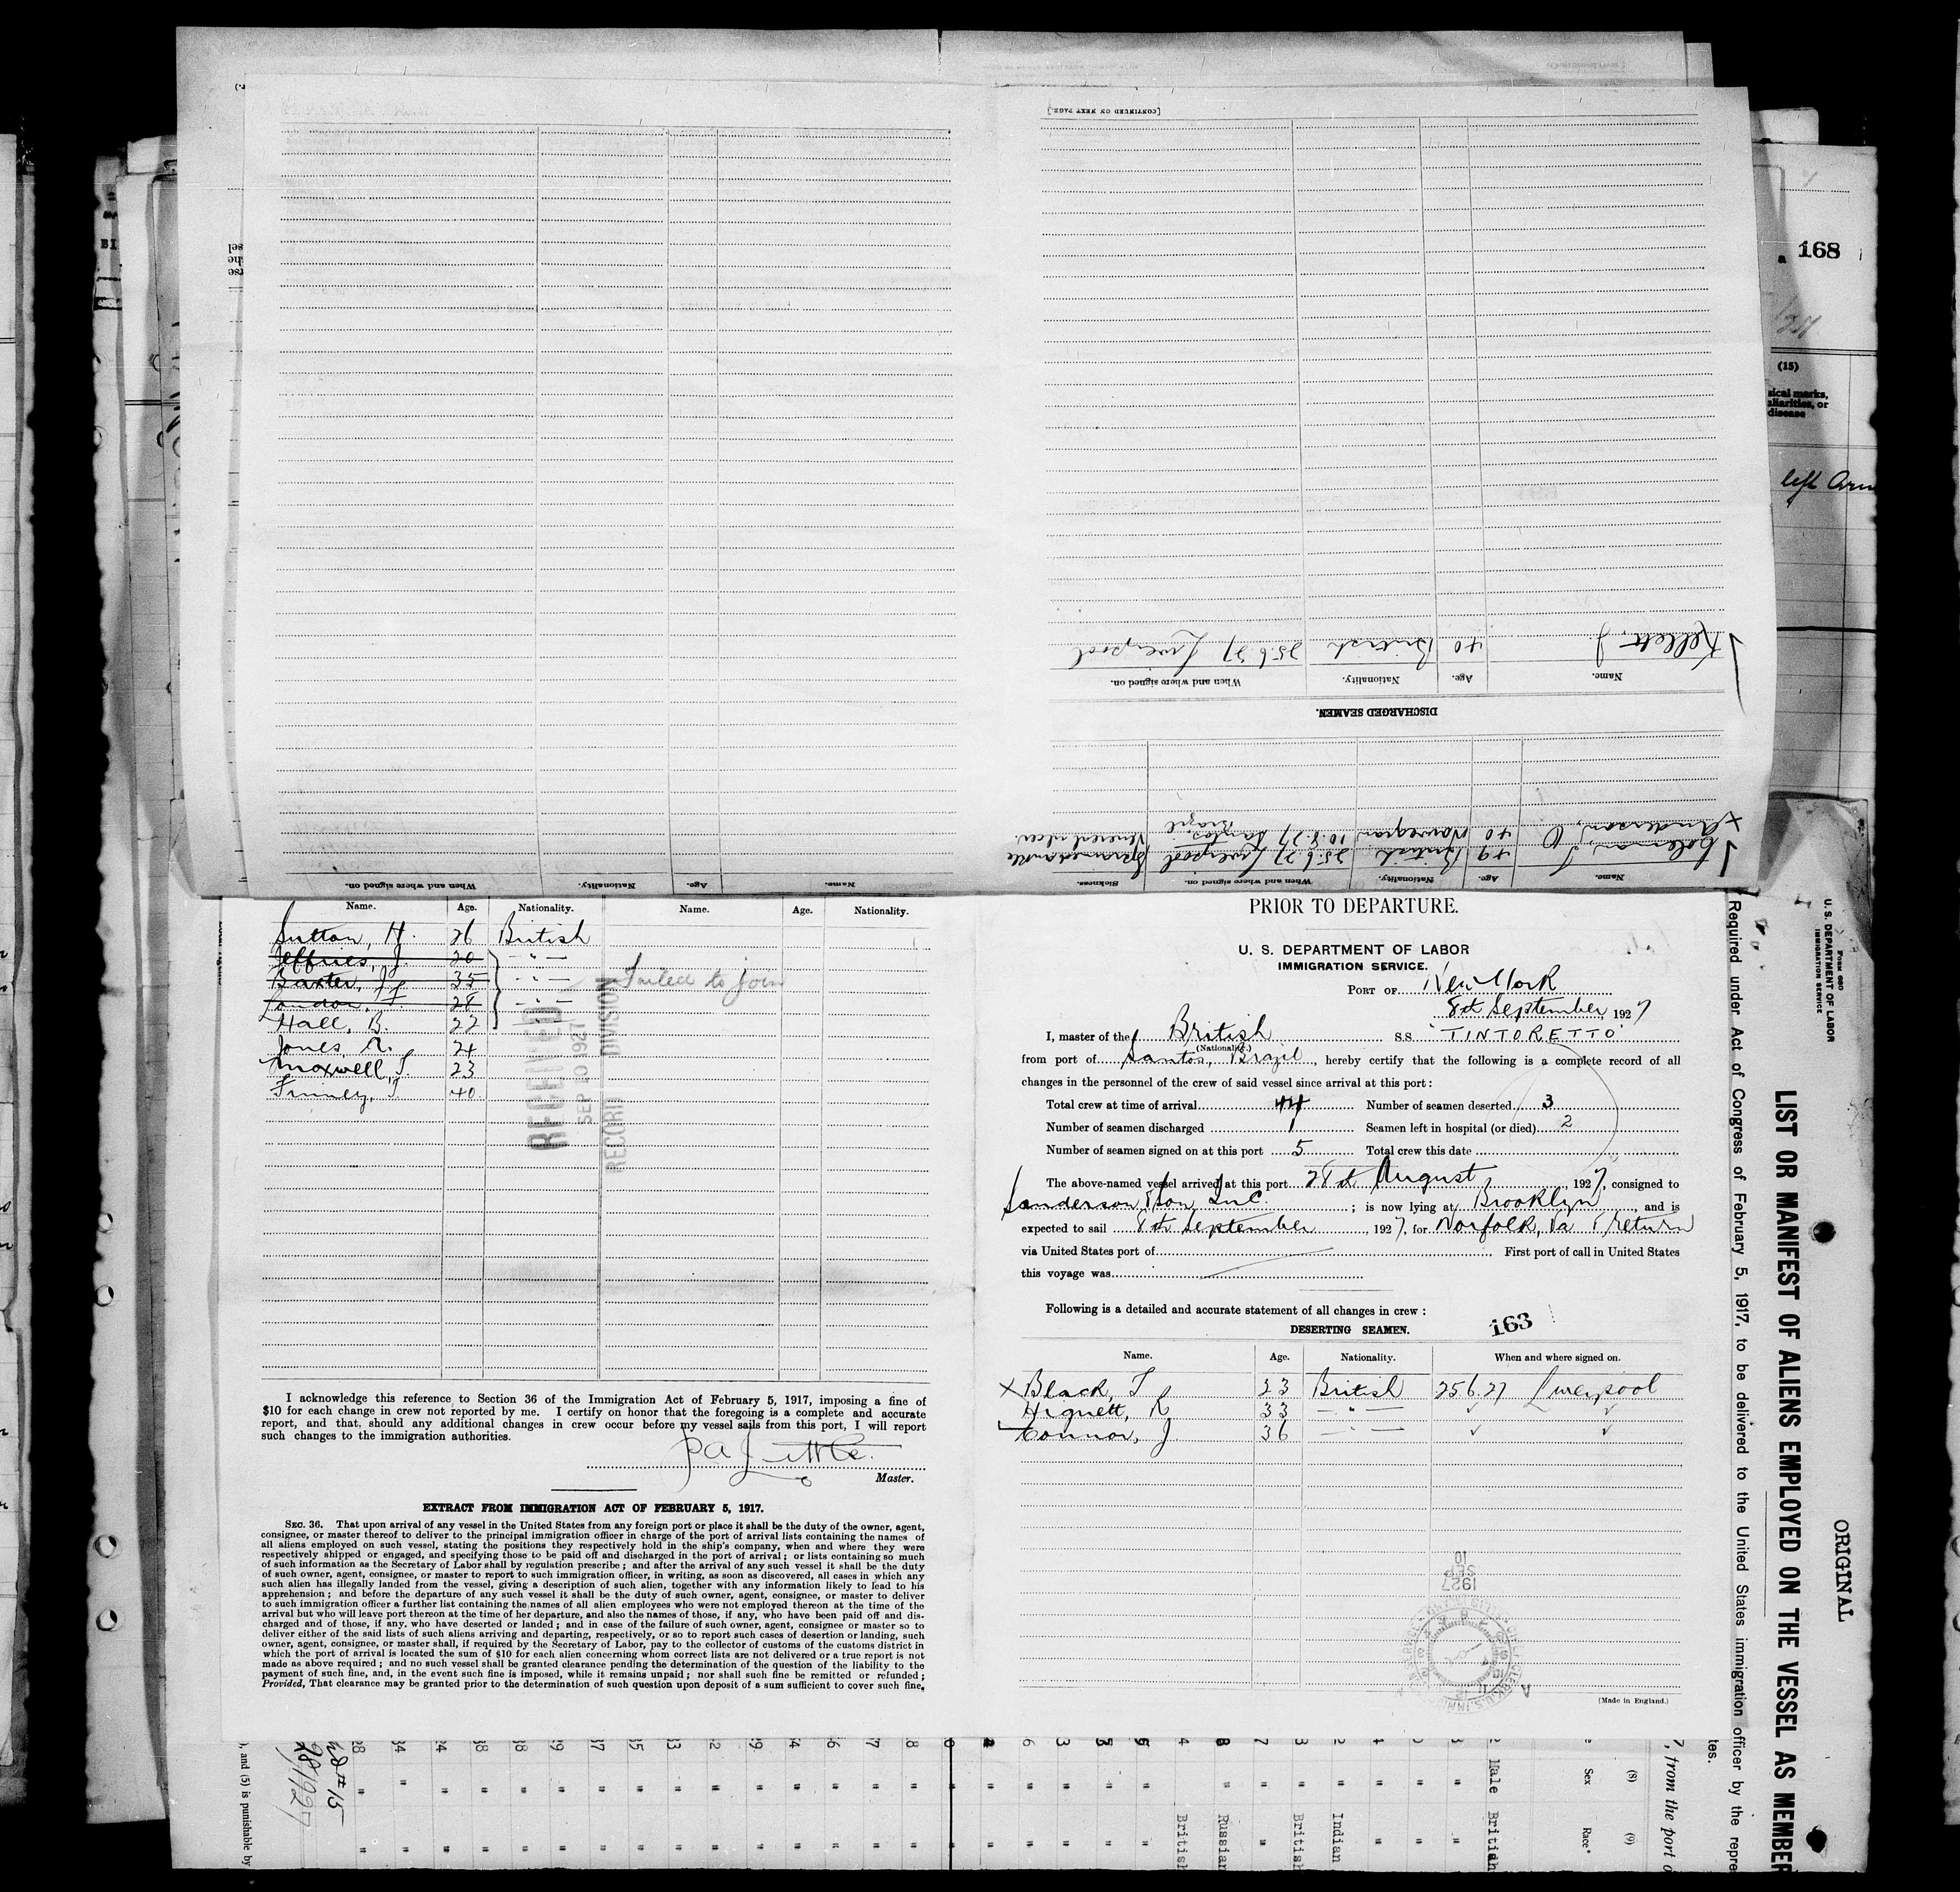 [CONTINUED ON NEXT PAGE.]
Kellett, J. 40 British 25.6.27 Liverpool
Name. Age. Nationality. When and where signed on.
DISCHARGED SEAMEN.
Anderson, O 40 Norwegian 10.8.27 Santos Brazil Venereal ulcer.
Coleman, J 49 British 25.6.27 Liverpool
Name. Age. Nationality. When and where signed on. Sickness.
Name. Age. Nationality. When and where signed on.
168
(15)
sical marks,
disease
left Arm
Name. Age. Nationality. Name. Age. Nationality.
Sutton, H. 26 British
Jeffries, J. 20 - " -
Baxter, J 35 - " - Failed to join
London 28 - " -
Hall, B. 22
Jones, R. 24
Maxwell, J. 23
40
RECEIVED
SEP 10 1927
RECORD DIVISION
I acknowledge this reference to Section 36 of the Immigration Act of February 5, 1917, imposing a fine of
$10 for each change in crew not reported by me. I certify on honor that the foregoing is a complete and accurate
report, and that, should any additional changes in crew occur before my vessel sails from this port, I will report
such changes to the immigration authorities.
Little
Master.
EXTRACT FROM IMMIGRATION ACT OF FEBRUARY 5, 1917.
SEC. 36. That upon arrival of any vessel in the United States from any foreign port or place it shall be the duty of the owner, agent,
consignee, or master thereof to deliver to the principal immigration officer in charge of the port of arrival lists containing the names of
all aliens employed on such vessel, stating the positions they respectively hold in the ship's company, when and where they were
respectively shipped or engaged, and specifying those to be paid off and discharged in the port of arrival; or lists containing so much
of such information as the Secretary of Labor shall by regulation prescribe; and after the arrival of any such vessel it shall be the duty
of such owner, agent, consignee, or master to report to such immigration officer, in writing, as soon as discovered, all cases in which any
such alien has illegally landed from the vessel, giving a description of such alien, together with any information likely to lead to his
apprehension; and before the departure of any such vessel it shall be the duty of such owner, agent, consignee, or master to deliver
to such immigration officer a further list containing the names of all alien employees who were not employed thereon at the time of the
arrival but who will leave port thereon at the time of her departure, and also the names of those, if any, who have been paid off and dis-
charged and of those, if any, who have deserted or landed; and in case of the failure of such owner, agent, consignee or master so to
deliver either of the said lists of such aliens arriving and departing, respectively, or so to report such cases of desertion or landing, such
owner, agent, consignee, or master shall, if required by the Secretary of Labor, pay to the collector of customs of the customs district in
which the port of arrival is located the sum of $10 for each alien concerning whom correct lists are not delivered or a true report is not
made as above required; and no such vessel shall be granted clearance pending the determination of the question of the liability to the
payment of such fine, and, in the event such fine is imposed, while it remains unpaid; nor shall such fine be remitted or refunded;
Provided, That clearance may be granted prior to the determination of such question upon deposit of a sum sufficient to cover such fine.
PRIOR TO DEPARTURE.
U. S. DEPARTMENT OF LABOR
IMMIGRATION SERVICE.
PORT OF New York
8th September, 1927
I, master of the British S.S. "TINTORETTO"
(Nationality.)
from port of Santos, Brazil, hereby certify that the following is a complete record of all
changes in the personnel of the crew of said vessel since arrival at this port:
Total crew at time of arrival 44 Number of seamen deserted 3
Number of seamen discharged 1 Seamen left in hospital (or died) 2
Number of seamen signed on at this port 5 Total crew this date
The above-named vessel arrived at this port 28th August, 1927, consigned to
Sanderson & Son Inc. ; is now lying at Brooklyn, and is
expected to sail 8th September, 1927, for Norfolk, Va & return
via United States port of First port of call in United States
this voyage was
Following is a detailed and accurate statement of all changes in crew:
DESERTING SEAMEN. 163
Name. Age. Nationality. When and where signed on.
X Black, T 23 British 25.6.27 Liverpool
Hignett, R 33 - " - ✓ ✓
Connor, J 36 - " - ✓ ✓
1927
SEP
10
(Made in England.)
Form 680
U. S. DEPARTMENT OF LABOR
IMMIGRATION SERVICE
ORIGINAL
LIST OR MANIFEST OF ALIENS EMPLOYED ON THE VESSEL AS MEMBER
Required under Act of Congress of February 5, 1917, to be delivered to the United States immigration officer by the repre
tes.
, from the port o
(8) (9)
Sex Race
Male British
Indian
British
Russian
British
), and (5) is punishable by